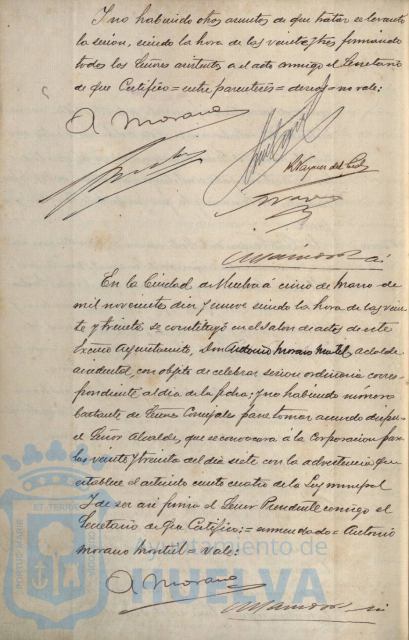 Y no habiendo otros asuntos de que tratar se levantó
la sesion, siendo la hora de las veinte y tres firmando
todos los Señores asistentes a el acto conmigo el Secretario
de que Certifico = entre parentesis = deseos = no vale:
A Morano
A Vazquez del
En la Ciudad de Huelva á cinco de Marzo de
mil novecientos diez y nueve siendo la hora de las vein
te y treinta se constituyó en el Salon de actos de este
Excmo Ayuntamiento, Don Antonio Morano Montiel, alcalde
accidental, con objeto de celebrar sesion ordinaria corres-
pondiente al dia de la fecha; y no habiendo número
bastante de Señores Concejales para tomar acuerdo dispuso
el Señor Alcalde, que se convocara á la Corporacion para
las veinte y treinta del dia siete con la advertencia que
establece el articulo ciento cuatro de la Ley municipal
Y de ser asi firma el Señor Presidente conmigo el
Secretario de que Certifico: = enmendado = Antonio
Morano Montiel = Vale:
A Morano
PORTUS MARIS
ET TERRÆ
CUSTODIA
Ayuntamiento de
HUELVA